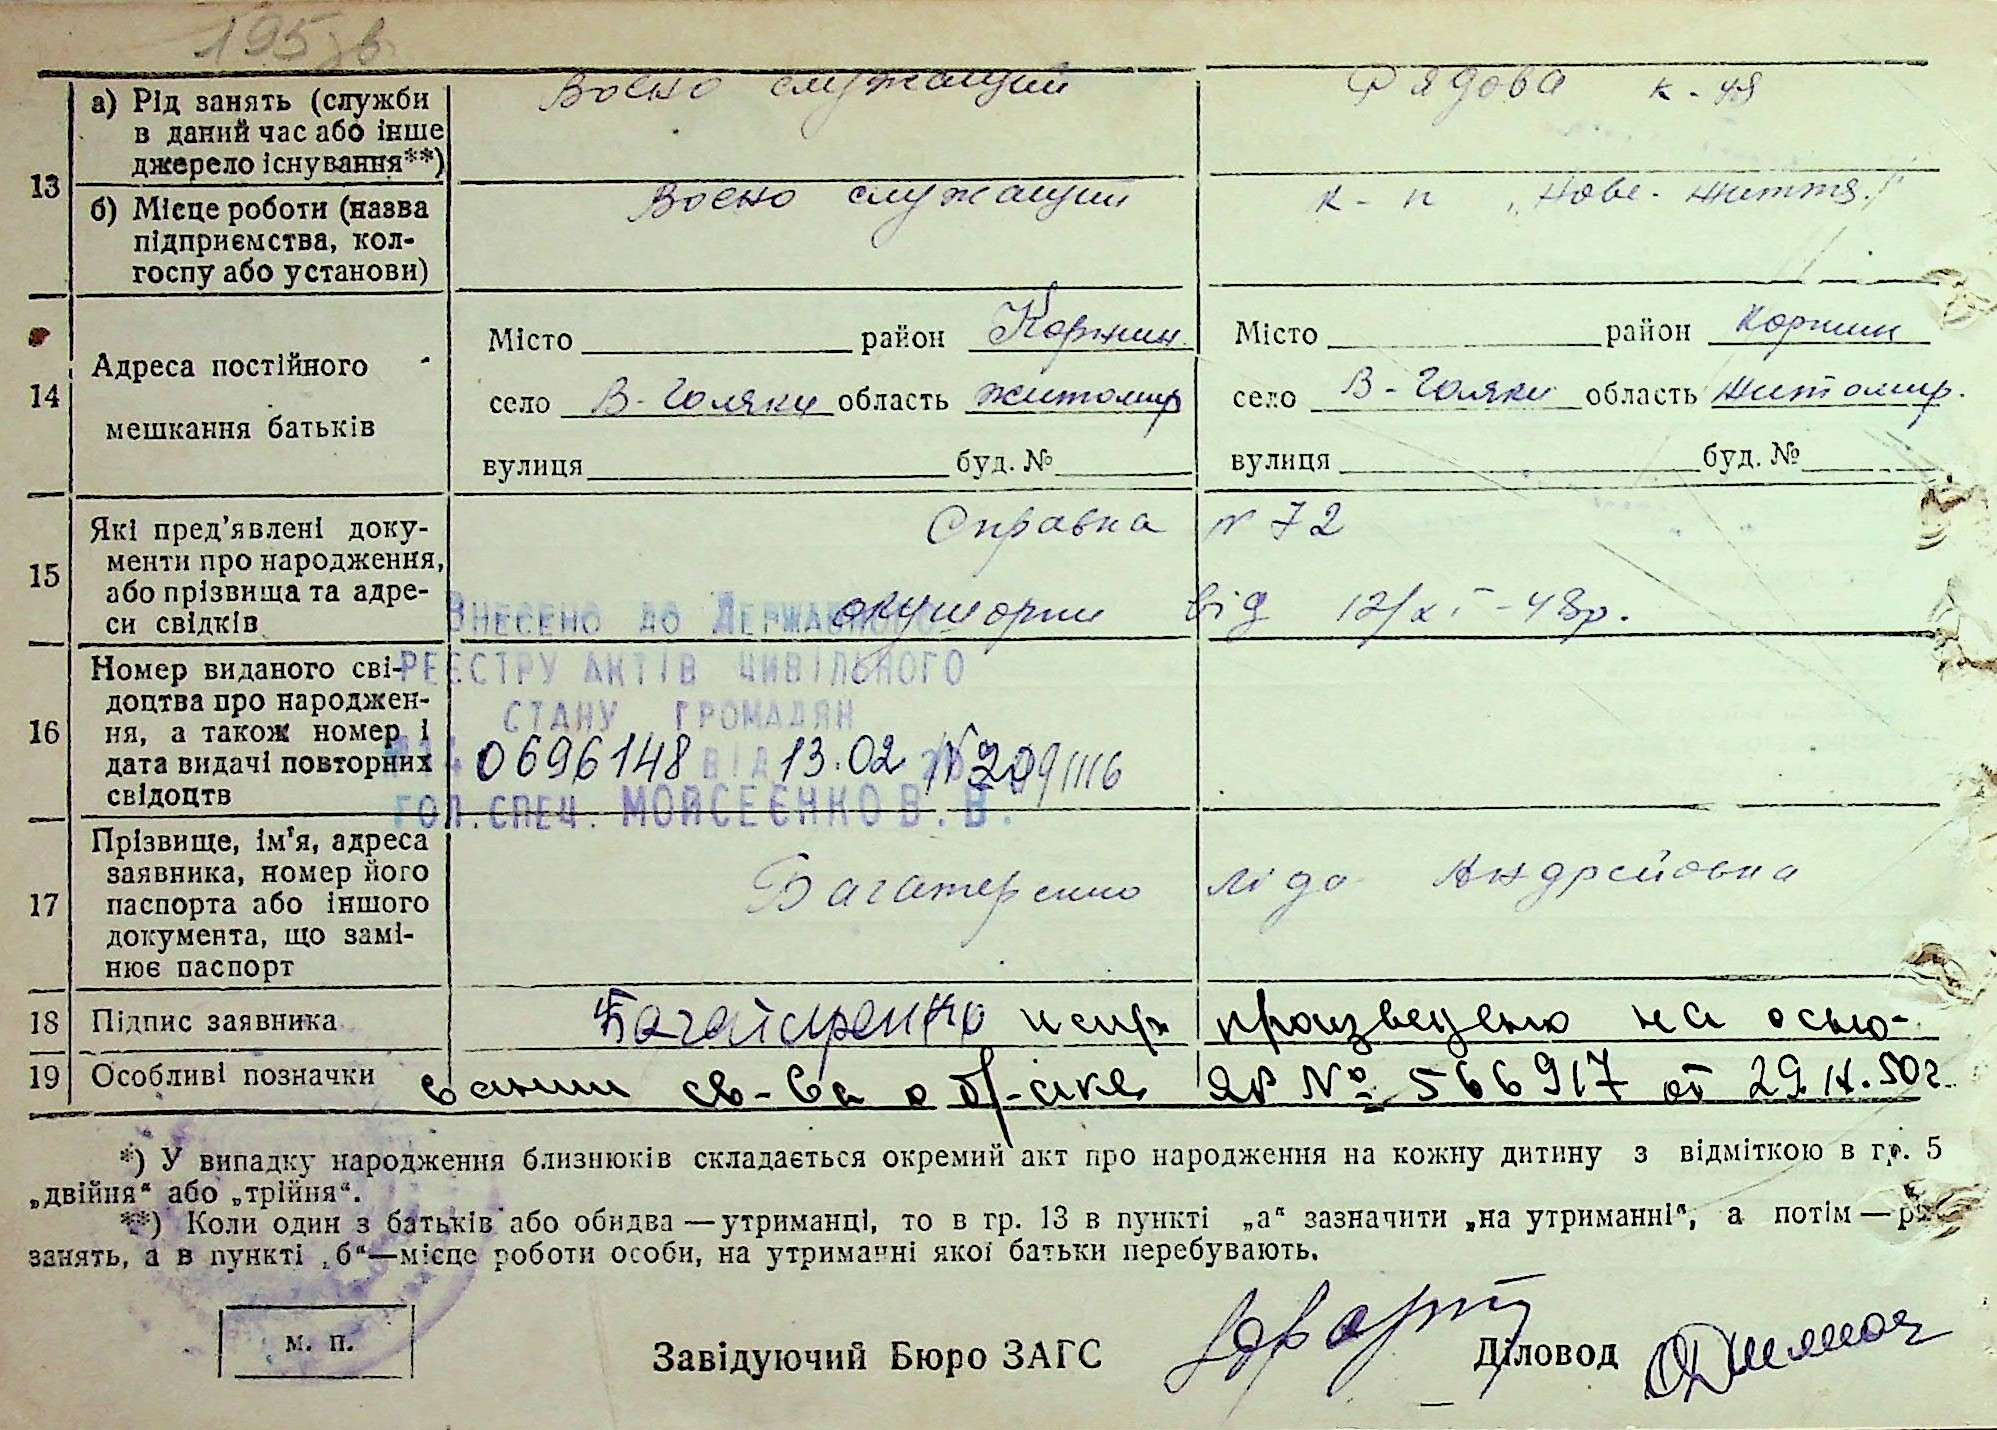 195 зв.
Воєно служащий Рядова к-
13 а) Рід занять (служби
в даний час або інше
джерело існування**)
Воєно служащий к-п „Нове-життя"
б) Місце роботи (назва
підприємства, кол-
госпу або установи)
14 Адреса постійного
мешкання батьків
Місто район Коржин Місто район Коржин
село В-Голяки область житомир село В-Голяки область Житомир.
вулиця буд. № вулиця буд. №
15 Які пред'явлені доку-
менти про народження,
або прізвища та адре-
си свідків
Справка N 72
акушорки від 12/XI-48р.
Внесено до Державного
реєстру актів цивільного
стану громадян
0696148 від 13.02
гол. спец. Мойсеєнко В. В.
16 Номер виданого сві-
доцтва про народжен-
ня, а також номер і
дата видачі повторних
свідоцтв
17 Прізвище, ім'я, адреса
заявника, номер його
паспорта або іншого
документа, що замі-
нює паспорт
Багатеренко Ліда Андрейовна
18 Підпис заявника испр. произведено на осно-
19 Особливі позначки вании св-ва о бр-аке ЯР № 566917 от 29. 50г.
*) У випадку народження близнюків складається окремий акт про народження на кожну дитину з відміткою в гр. 5
„двійня" або „трійня".
**) Коли один з батьків або обидва — утриманці, то в гр. 13 в пункті „а" зазначити „на утриманні", а потім —
занять, а в пункті „б"—місце роботи особи, на утриманні якої батьки перебувають.
м. п.
Завідуючий Бюро ЗАГС Діловод